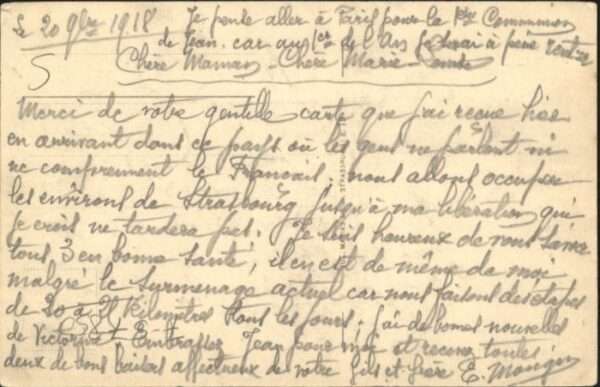 Le 20 9bre 1918
Je pense aller à Paris pour la 1ère Communion
de Jean. car au 1er de l'An je serai à peine rentré
Chère Maman - Chère Marie-
Merci de votre gentille carte que j'ai reçue hier
en arrivant dans ce pays où les gens ne parlent ni
ne comprennent le Français. nous allons occuper
les environs de Strasbourg jusqu'à ma libération qui
je crois ne tardera pas. Je suis heureux de vous savoir
tous 3 en bonne santé, il en est de même de moi
malgré le surmenage actuel car nous faisons des étapes
de 20 à Kilomètres tous les jours. j'ai de bonnes nouvelles
de Victorine Embrasser Jean pour moi et recevez toutes
deux de bons baisers affectueux de votre fils et frère E. Mougin